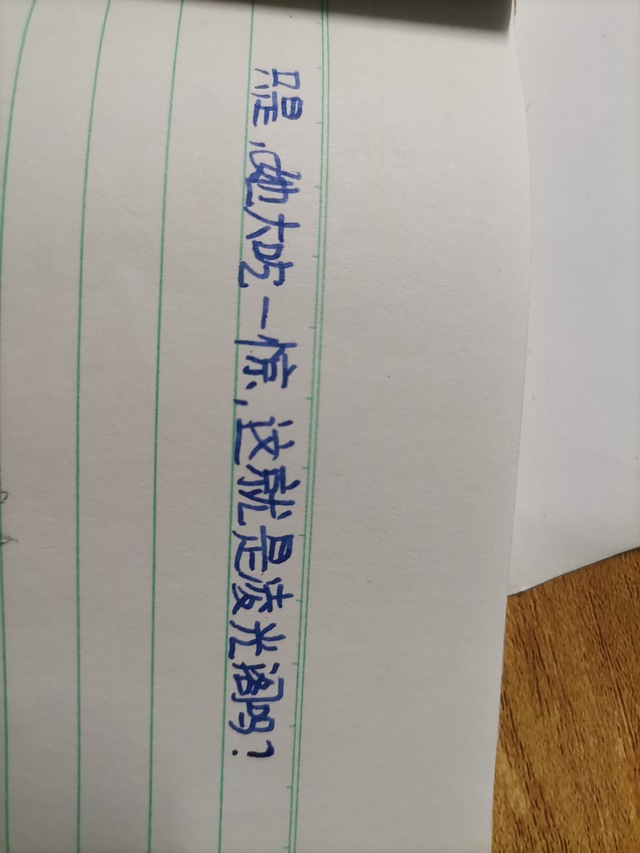 只是,她大吃一惊,这就是凌光阁吗?